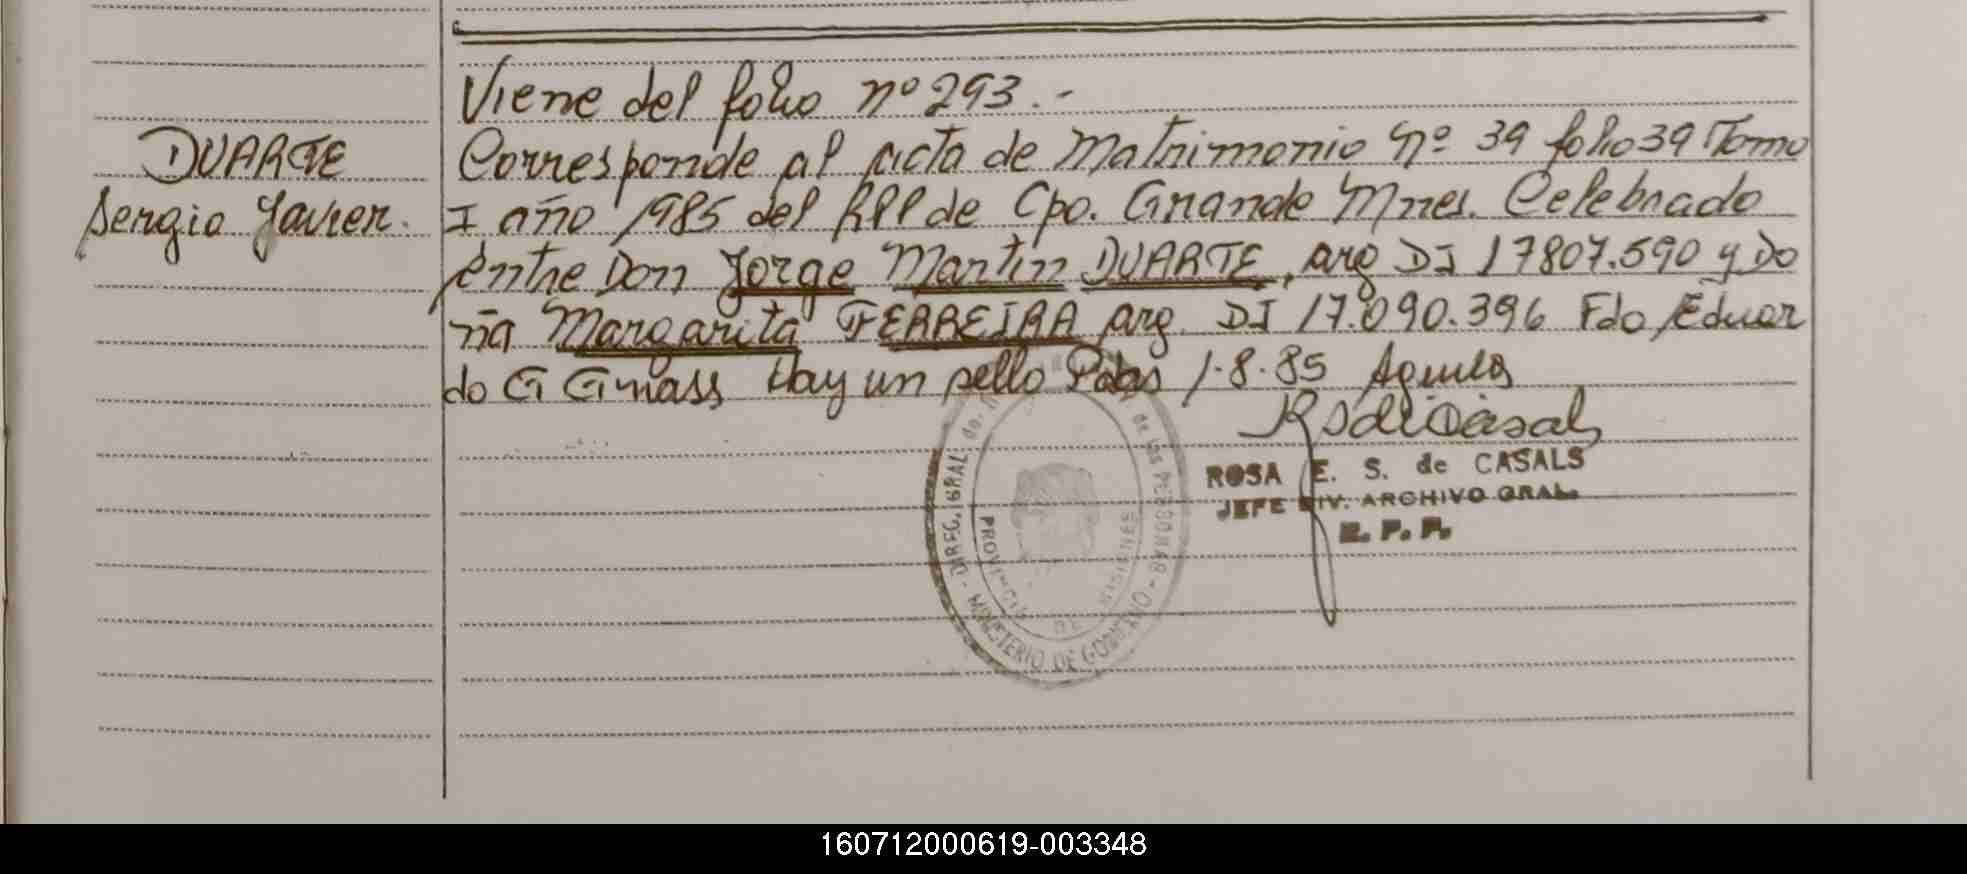 Viene del folio nº 293.-
DUARTE
Sergio Javier.
Corresponde al acta de Matrimonio nº 39 folio 39 Tomo
I año 1985 del RPP de Cpo. Grande Mnes. Celebrado
entre Don Jorge Martin DUARTE, arg DI 17807.590 y Do
ña Margarita FERREIRA arg. DI 17.090.396 Fdo Eduar
do G Gnass Hay un sello Pdas 1.8.85 Aguila
ROSA E. S. de CASALS
JEFE DIV. ARCHIVO GRAL.
R. P. P.
DIREC. GRAL. de las PERSONAS - MINISTERIO DE GOBIERNO -
PROVINCIA DE MISIONES
160712000619-003348